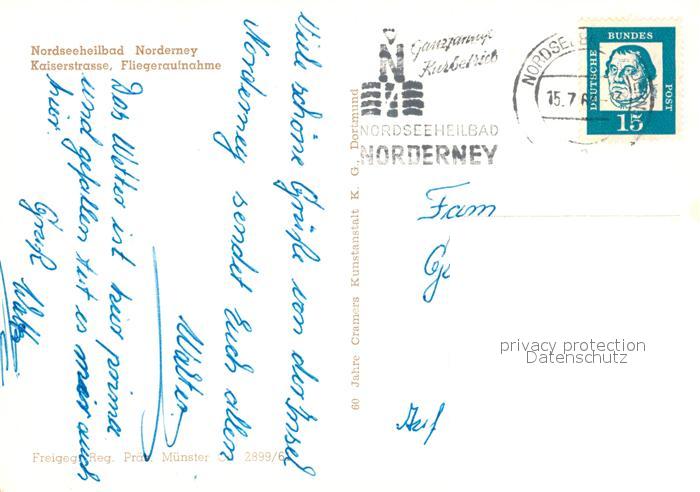 Nordseeheilbad Norderney
Kaiserstrasse, Fliegeraufnahme
Viele schöne Grüße von der Insel
Norderney sendet Euch allen
Walter.
Das Wetter ist hier prima
und gefallen tut es mir auch
hier.
Gruß
60 Jahre Cramers Kunstanstalt K. G., Dortmund
Freigeg. Reg. Präs. Münster 2899/6
Ganzjährig
Kurbetrieb
N
NORDSEEHEILBAD
NORDERNEY
NORDSEE
15.7.6
DEUTSCHE BUNDES POST
15
Fam
privacy protection
Datenschutz
Auf